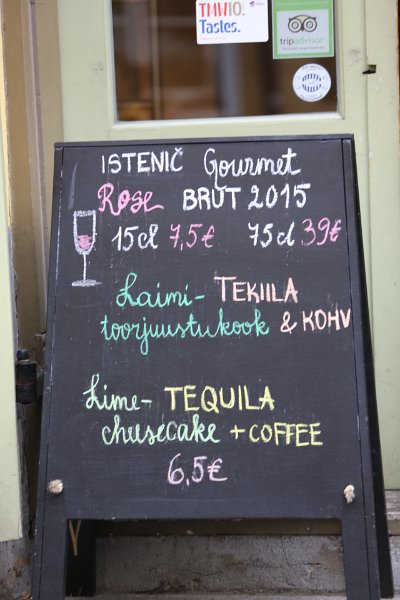 TMW10.
Tastes.
tripadvisor
ISTENIČ Gourmet
Rose BRUT 2015
15cl 7,5€ 75cl 39€
Laimi- TEKIILA
toorjuustukook & KOHV
Lime- TEQUILA
chusecake + COFFEE
6,5€